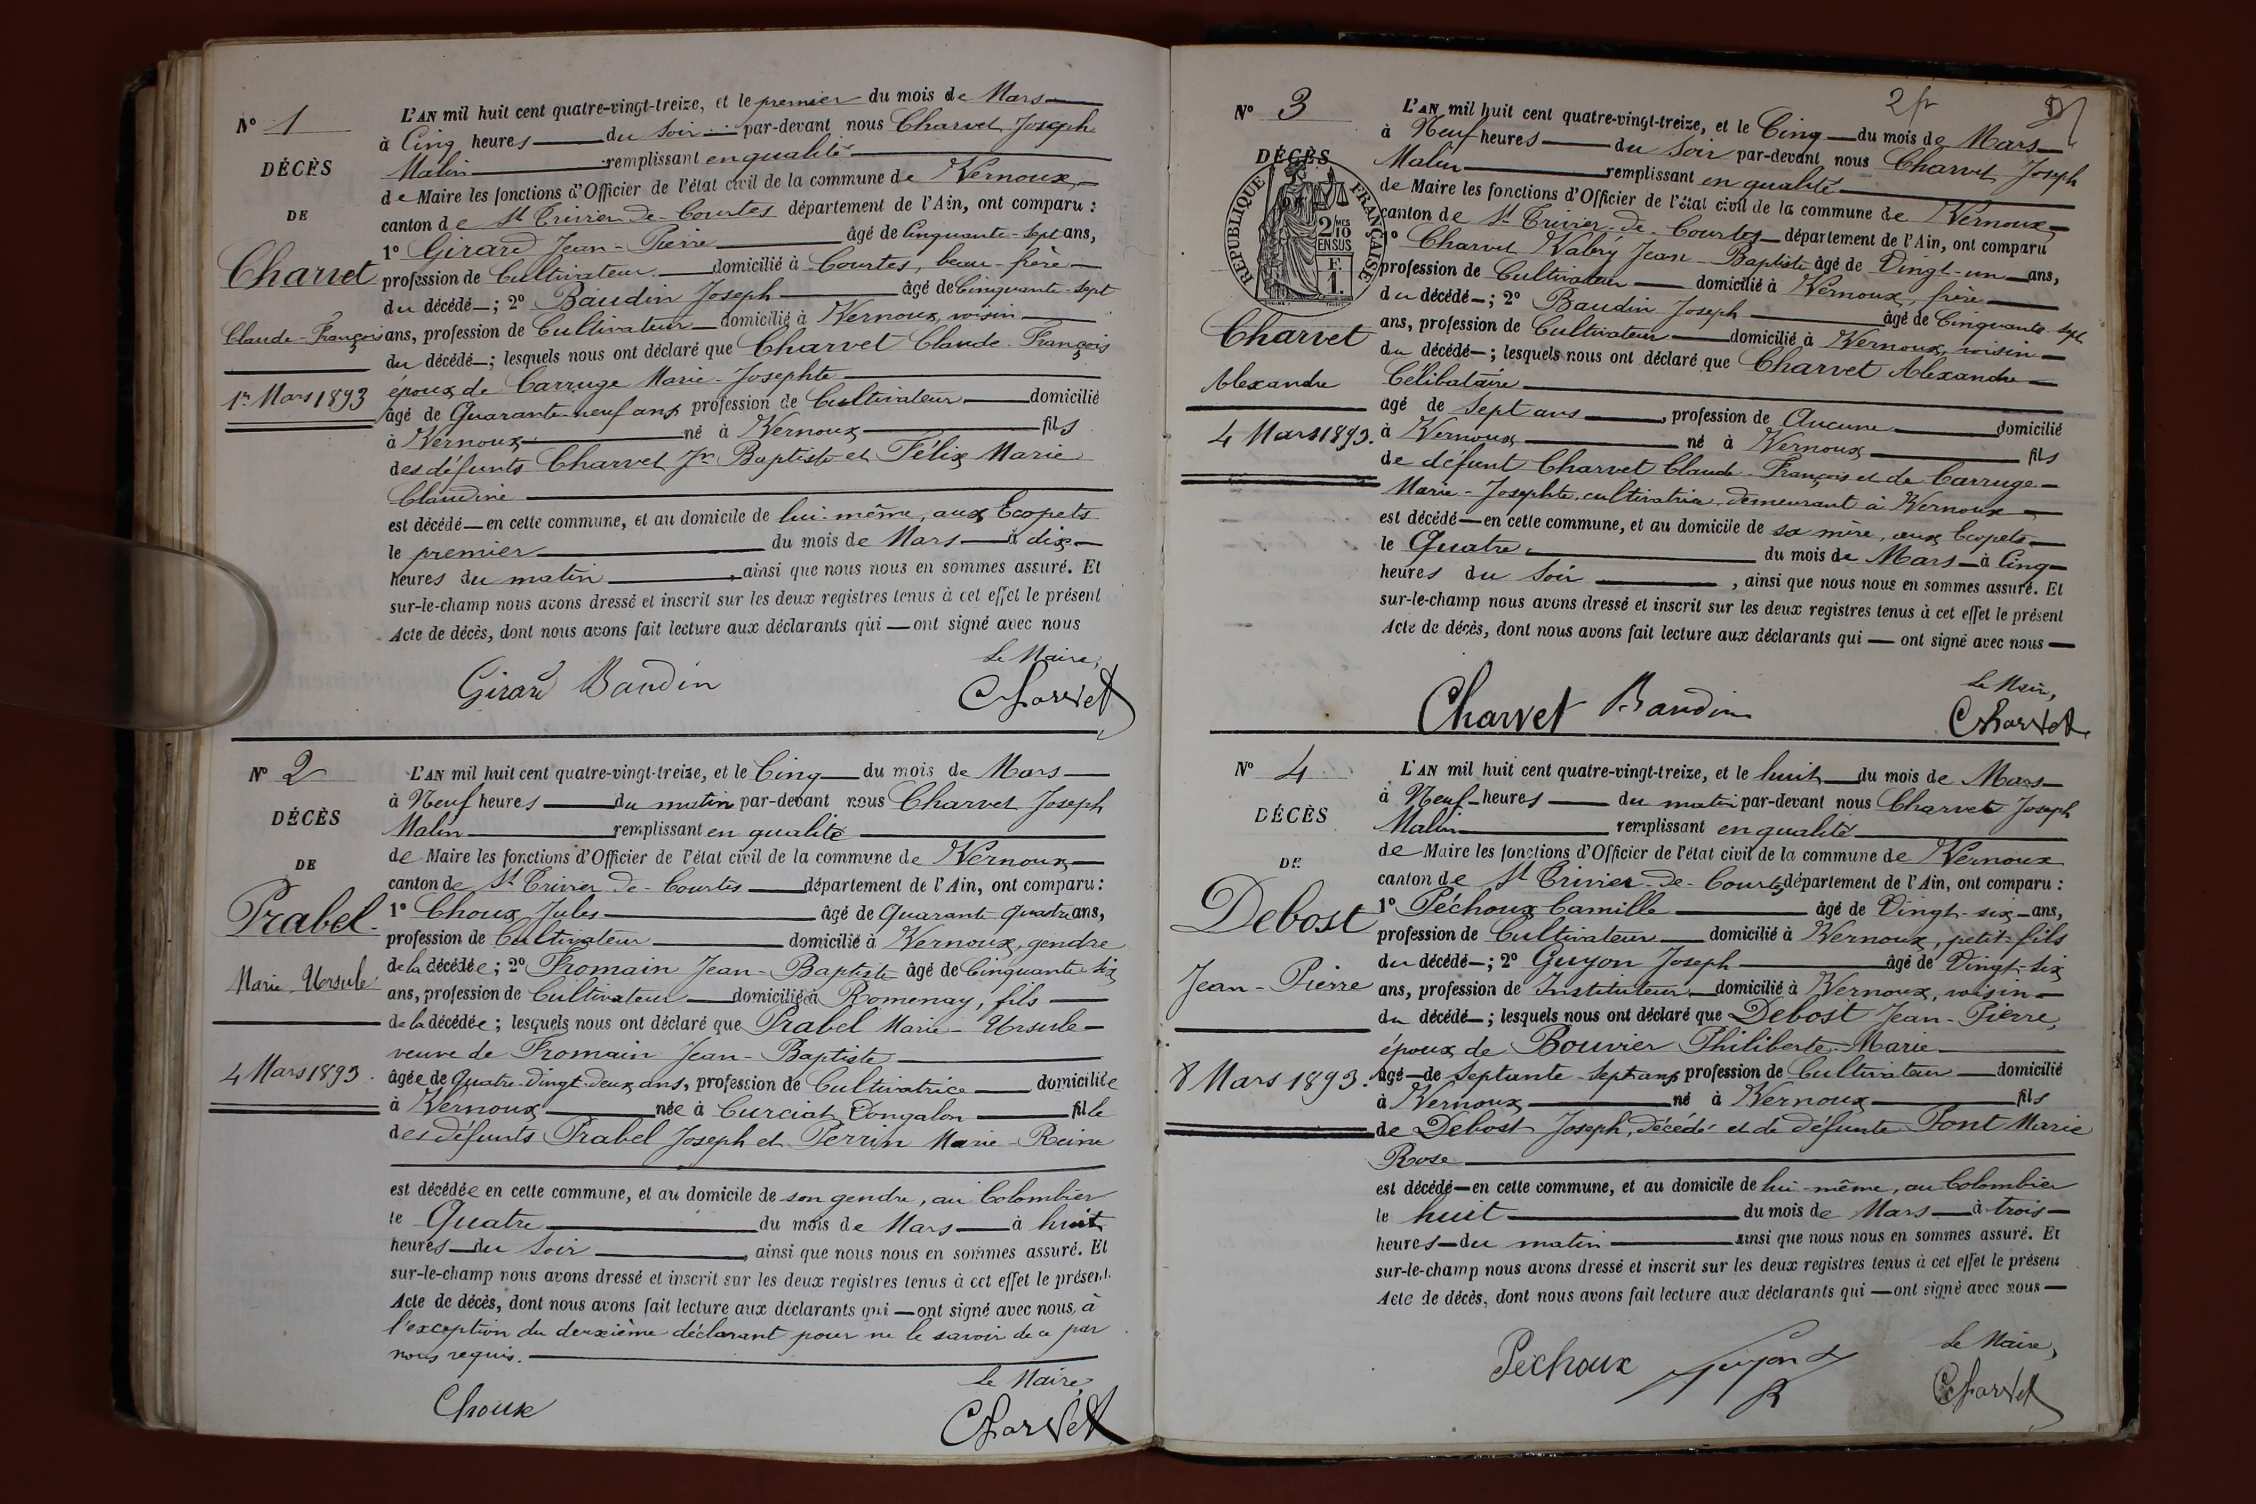 N° 1
DÉCÈS
DE
Charvet
Claude-François
1er Mars 1893
L'AN mil huit cent quatre-vingt-treize, et le premier du mois de Mars
à Cinq heures du Soir par-devant nous Charvet Joseph
Malin remplissant en qualité
de Maire les fonctions d'Officier de l'état civil de la commune de Vernoux,
canton de St Trivier-de-Courtes département de l'Ain, ont comparu :
1° Girard Jean-Pierre âgé de Cinquante-sept ans,
profession de Cultivateur domicilié à Courtes, beau-frère
du décédé ; 2° Baudin Joseph âgé de Cinquante-sept
ans, profession de Cultivateur domicilié à Vernoux, voisin
du décédé ; lesquels nous ont déclaré que Charvet Claude-François
époux de Carruge Marie-Josephte
âgé de Quarante-neuf ans, profession de Cultivateur domicilié
à Vernoux né à Vernoux fils
des défunts Charvet Jn Baptiste et Félix Marie
Claudine
est décédé en cette commune, et au domicile de lui-même, aux Ecopets
le premier du mois de Mars à dix
heures du matin, ainsi que nous nous en sommes assuré. Et
sur-le-champ nous avons dressé et inscrit sur les deux registres tenus à cet effet le présent
Acte de décès, dont nous avons fait lecture aux déclarants qui ont signé avec nous
Le Maire,
Girard Baudin Charvet
N° 2
DÉCÈS
DE
Prabel
Marie Ursule
4 Mars 1893.
L'AN mil huit cent quatre-vingt-treize, et le Cinq du mois de Mars
à Neuf heures du matin par-devant nous Charvet Joseph
Malin remplissant en qualité
de Maire les fonctions d'Officier de l'état civil de la commune de Vernoux
canton de St Trivier-de-Courtes département de l'Ain, ont comparu :
1° Choux Jules âgé de Quarante-quatre ans,
profession de Cultivateur domicilié à Vernoux, gendre
de la décédée ; 2° Fromain Jean-Baptiste âgé de Cinquante-six
ans, profession de Cultivateur domicilié à Romenay, fils
de la décédée ; lesquels nous ont déclaré que Prabel Marie-Ursule
veuve de Fromain Jean-Baptiste
âgée de Quatre-vingt-deux ans, profession de Cultivatrice domiciliée
à Vernoux née à Curciat Dongalon fille
des défunts Prabel Joseph et Perrin Marie-Reine
est décédée en cette commune, et au domicile de son gendre, au Colombier
le Quatre du mois de Mars à huit
heures du Soir, ainsi que nous nous en sommes assuré. Et
sur-le-champ nous avons dressé et inscrit sur les deux registres tenus à cet effet le présent
Acte de décès, dont nous avons fait lecture aux déclarants qui ont signé avec nous, à
l'exception du deuxième déclarant pour ne le savoir de ce par
nous requis.
Le Maire,
Choux Charvet
2 fr
N° 3
DÉCÈS
RÉPUBLIQUE FRANÇAISE
2/10 MES
EN SUS
F.
1.
Charvet
Alexandre
4 Mars 1893.
L'AN mil huit cent quatre-vingt-treize, et le Cinq du mois de Mars
à Neuf heures du Soir par-devant nous Charvet Joseph
Malin remplissant en qualité
de Maire les fonctions d'Officier de l'état civil de la commune de Vernoux
canton de St Trivier-de-Courtes département de l'Ain, ont comparu
1° Charvet Valéry Jean-Baptiste âgé de Vingt-un ans,
profession de Cultivateur domicilié à Vernoux, frère
du décédé ; 2° Baudin Joseph âgé de Cinquante-sept
ans, profession de Cultivateur domicilié à Vernoux, voisin
du décédé ; lesquels nous ont déclaré que Charvet Alexandre
Célibataire
agé de Sept ans, profession de Aucune domicilié
à Vernoux né à Vernoux fils
de défunt Charvet Claude-François et de Carruge
Marie-Josephte, cultivatrice, demeurant à Vernoux
est décédé en cette commune, et au domicile de sa mère, aux Ecopets
le Quatre du mois de Mars à Cinq
heures du Soir, ainsi que nous nous en sommes assuré. Et
sur-le-champ nous avons dressé et inscrit sur les deux registres tenus à cet effet le présent
Acte de décès, dont nous avons fait lecture aux déclarants qui ont signé avec nous
Le Maire,
Charvet Baudin Charvet
N° 4
DÉCÈS
DE
Debost
Jean-Pierre
8 Mars 1893.
L'AN mil huit cent quatre-vingt-treize, et le huit du mois de Mars
à Neuf heures du matin par-devant nous Charvet Joseph
Malin remplissant en qualité
de Maire les fonctions d'Officier de l'état civil de la commune de Vernoux
canton de St Trivier-de-Courtes département de l'Ain, ont comparu :
1° Péchoux Camille âgé de Vingt-six ans,
profession de Cultivateur domicilié à Vernoux, petit-fils
du décédé ; 2° Guyon Joseph âgé de Vingt-six
ans, profession de Instituteur domicilié à Vernoux, voisin
du décédé ; lesquels nous ont déclaré que Debost Jean-Pierre,
époux de Bouvier Philiberte-Marie
âgé de Septante-sept ans, profession de Cultivateur domicilié
à Vernoux né à Vernoux fils
de Debost Joseph, décédé et de défunte Font Marie
Rose
est décédé en cette commune, et au domicile de lui-même, au Colombier
le huit du mois de Mars à trois
heures du matin ainsi que nous nous en sommes assuré. Et
sur-le-champ nous avons dressé et inscrit sur les deux registres tenus à cet effet le présent
Acte de décès, dont nous avons fait lecture aux déclarants qui ont signé avec nous
Le Maire,
Péchoux Guyon Charvet